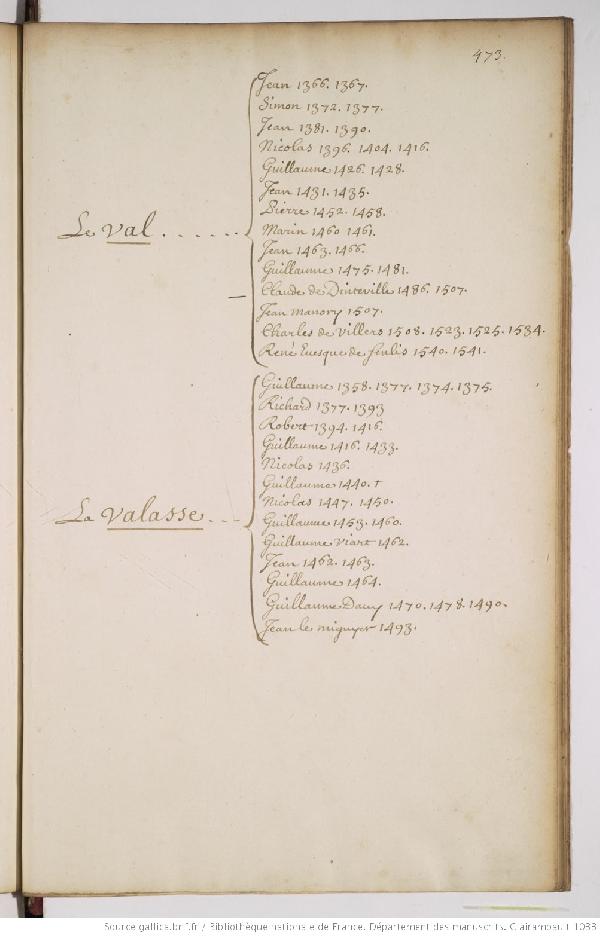 473.
Jean 1366. 1367.
Simon 1372. 1377.
Jean 1381. 1390.
Nicolas 1396. 1404. 1416.
Guillaume 1426. 1428.
Jean 1431. 1435.
Pierre 1452. 1458.
Le val......
Marin 1460. 1461.
Jean 1463. 1466.
Guillaume 1475. 1481.
Claude de Dinteville 1486. 1507.
Jean manory 1507.
Charles de villers 1508. 1523. 1525. 1534.
René Euesque de senlis 1540. 1541.
Guillaume 1358. 1377. 1374. 1375.
Richard 1377. 1393
Robert 1394. 1416.
Guillaume 1416. 1433.
Nicolas 1436.
Guillaume 1440. †
Nicolas 1447. 1450.
La valasse...
Guillaume 1453. 1460.
Guillaume viart 1462.
Jean 1462. 1463.
Guillaume 1464.
Guillaume 1470. 1478. 1490.
Jean le 1493.
Source gallica.bnf.fr / Bibliothèque nationale de France. Département des manuscrits. Clairambault 1033